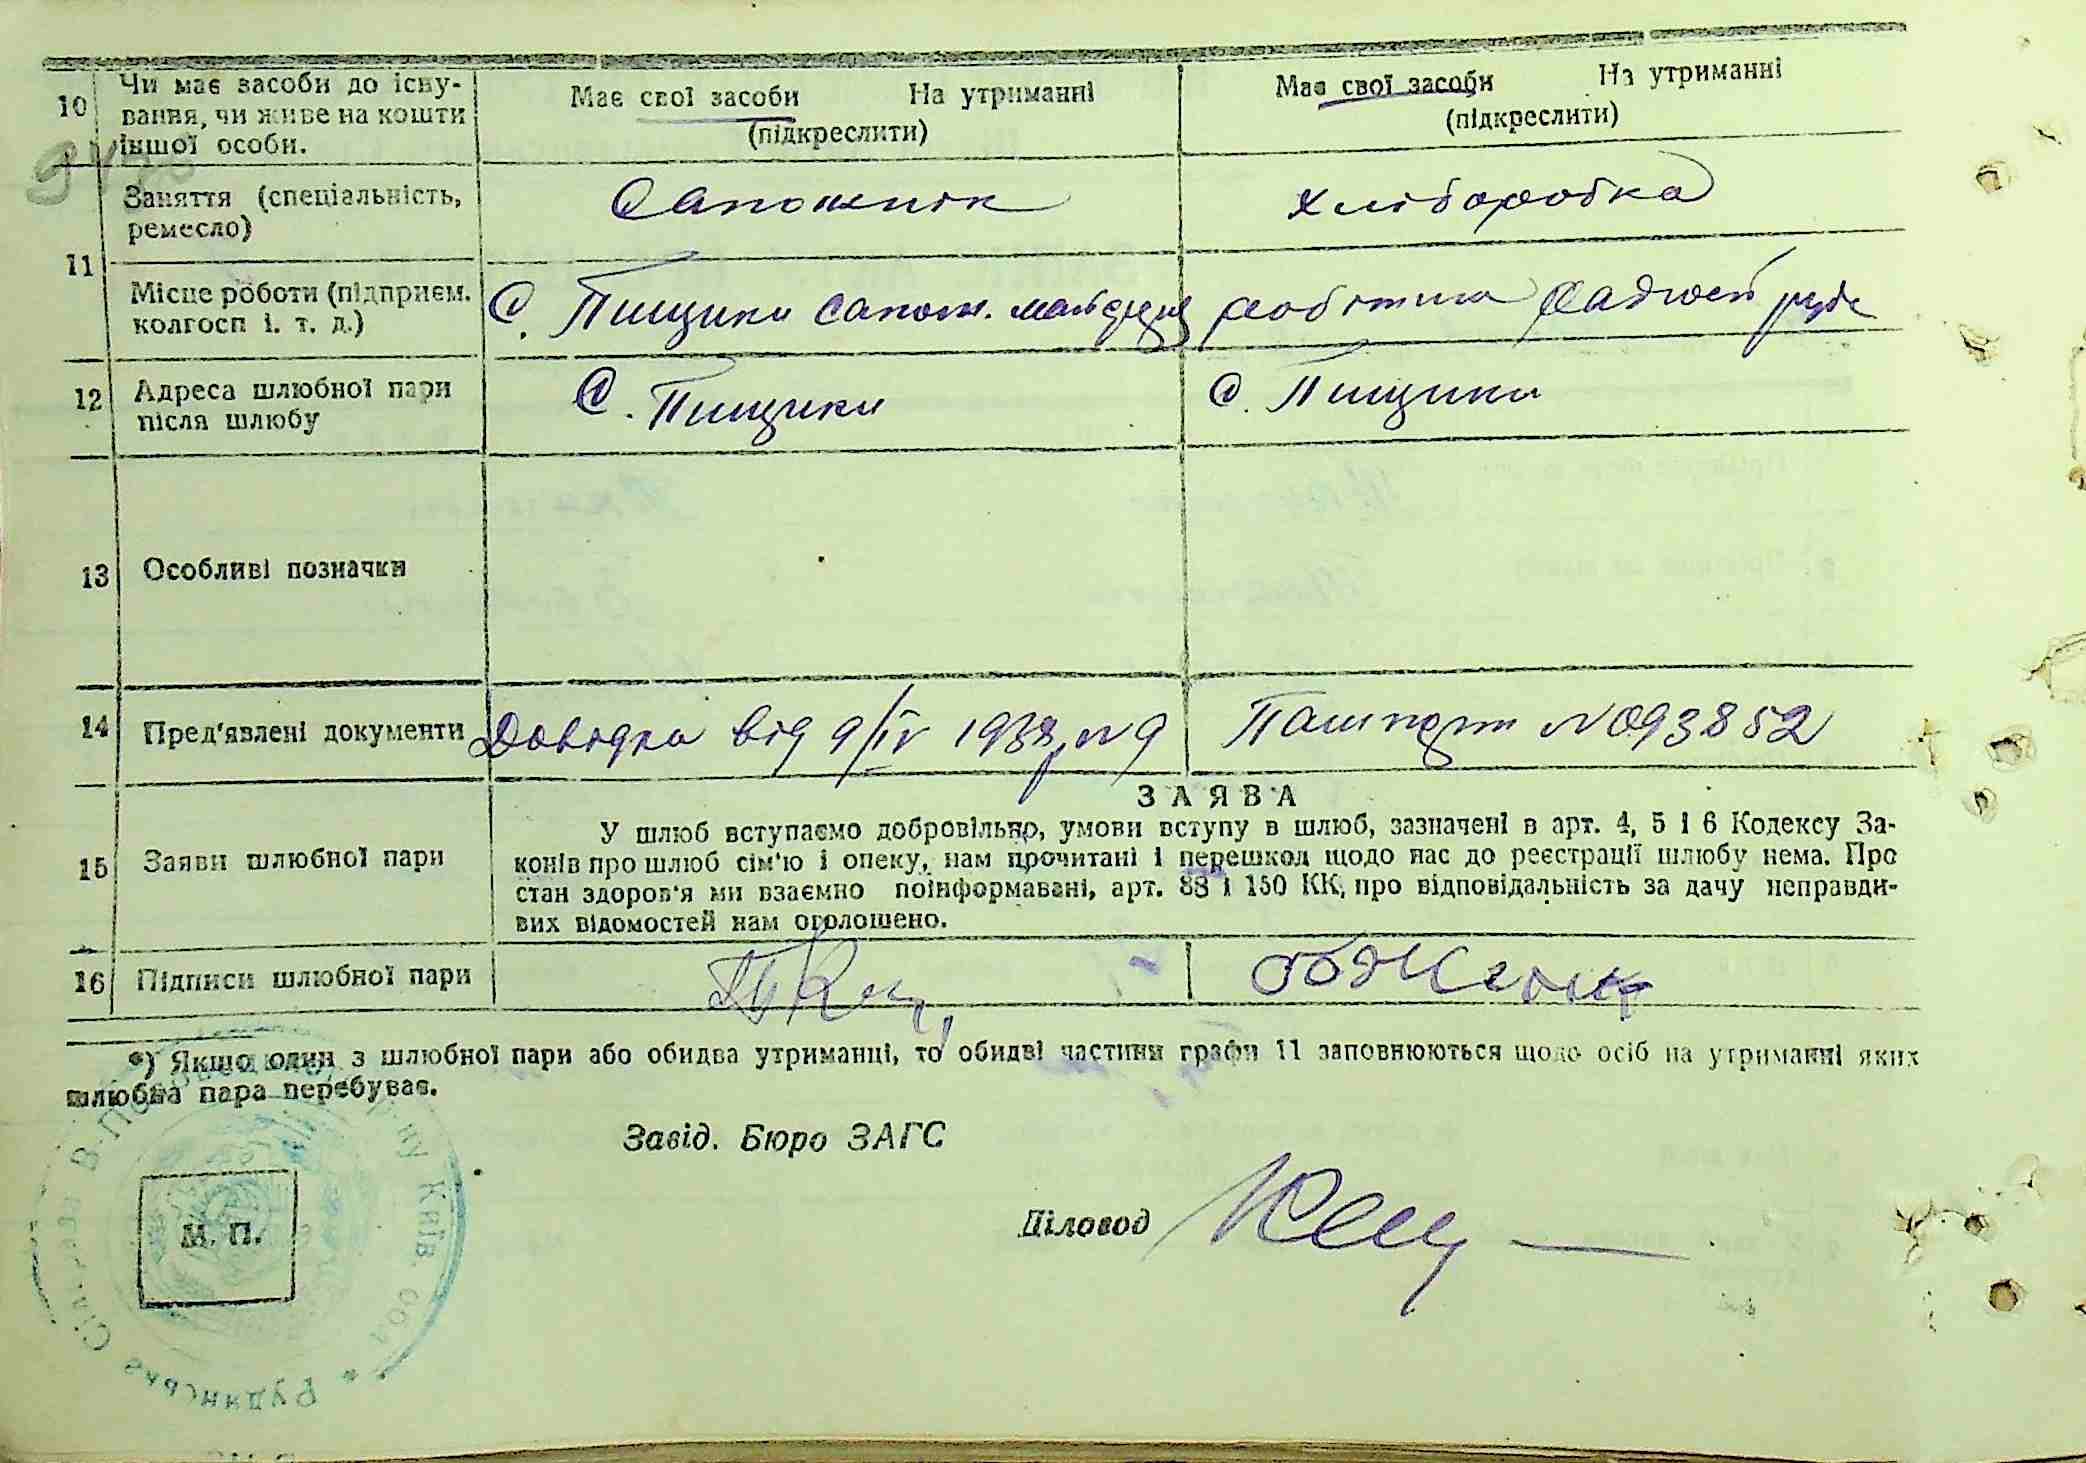 10 Чи має засоби до існу-
вання, чи живе на кошти
іншої особи.
Має свої засоби На утриманні
(підкреслити)
Має свої засоби На утриманні
(підкреслити)
11 Заняття (спеціальність,
ремесло)
Сапожнік
Хліборобка
Місце роботи (підприєм.
колгосп і. т. д.)
С. Пищики сапож.
робітниця
12 Адреса шлюбної пари
після шлюбу
С. Пищики
С. Пищики
13 Особливі позначки
14 Пред'явлені документи
Довідка від 9/IV 1938р. N 9
Пашпорт N 093852
15 Заяви шлюбної пари
ЗАЯВА
У шлюб вступаємо добровільно, умови вступу в шлюб, зазначені в арт. 4, 5 і 6 Кодексу За-
конів про шлюб сім'ю і опеку, нам прочитані і перешкод щодо нас до реєстрації шлюбу нема. Про
стан здоров'я ми взаємно поінформавані, арт. 88 і 150 КК, про відповідальність за дачу неправди-
вих відомостей нам оголошено.
16 Підписи шлюбної пари
*) Якщо один з шлюбної пари або обидва утриманці, то обидві частини графи 11 заповнюються щодо осіб на утриманні яких
шлюбна пара перебуває.
Завід. Бюро ЗАГС
Діловод
М. П.
Рудянська Київ. обл